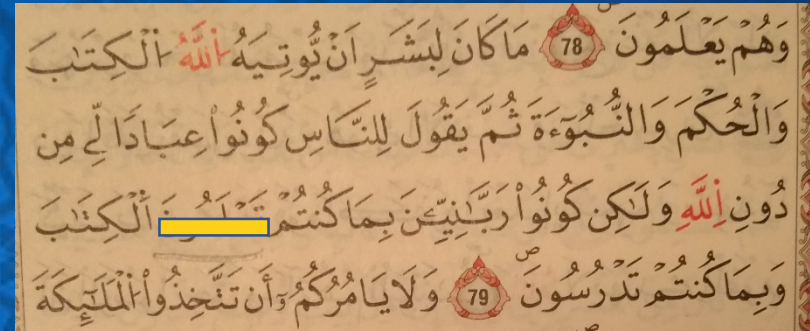 وَهُمْ يَعْلَمُونَ 78 مَا كَانَ لِبَشَرٍ اَنْ يُّوتِيَهُ اُ۬للَّهُ اُ۬لْكِتَٰبَ
وَالْحُكْمَ وَالنُّبُوٓءَةَ ثُمَّ يَقُولَ لِلنَّاسِ كُونُواْ عِبَادٗا لِّے مِن
دُونِ اِ۬للَّهِ وَلَٰكِن كُونُواْ رَبَّٰنِيِّـۧنَ بِمَا كُنتُمْ اَ۬لْكِتَٰبَ
وَبِمَا كُنتُمْ تَدْرُسُونَۖ 79 وَلَا يَامُرُكُمُۥٓ أَن تَتَّخِذُواْ اُ۬لْمَلَٰٓئِكَةَ